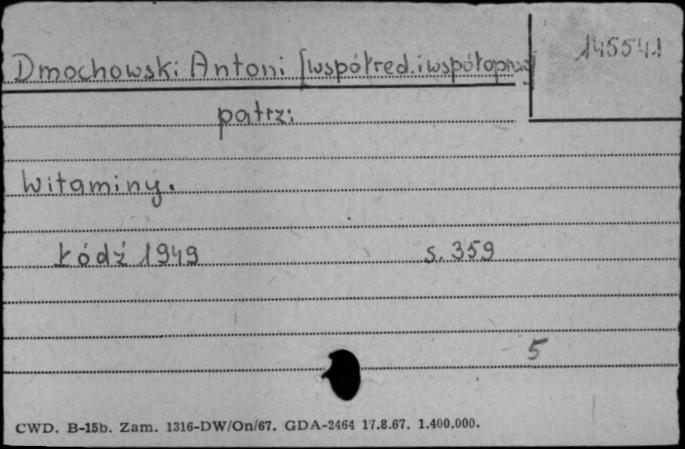 145541
Dmochowski Antoni [współred. i współoprac]
patrz:
Witaminy.
Łódź 1949 s. 359
5
CWD. B-15b. Zam. 1316-DW/On/67. GDA-2464 17.8.67. 1.400.000.